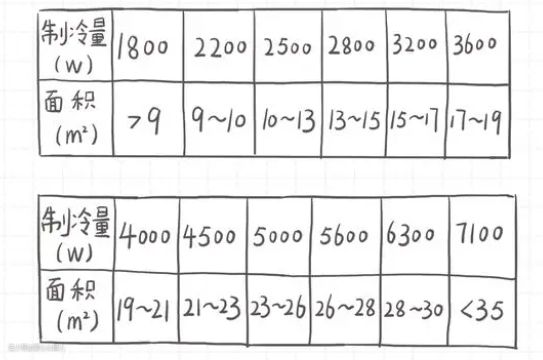 制冷量 1800 2200 2500 2800 3200 3600
(W)
面积 >9 9~10 10~13 13~15 15~17 17~19
(m²)
制冷量 4000 4500 5000 5600 6300 7100
(W)
面积 19~21 21~23 23~26 26~28 28~30 <35
(m²)